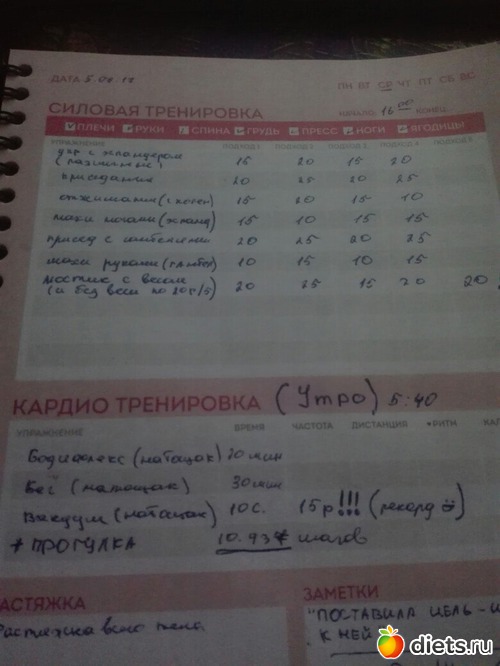 ДАТА 5.09.18 ПН ВТ СР ЧТ ПТ СБ ВС
СИЛОВАЯ ТРЕНИРОВКА НАЧАЛО: 16 00 КОНЕЦ:
ПЛЕЧИ РУКИ СПИНА ГРУДЬ ПРЕСС НОГИ ЯГОДИЦЫ
УПРАЖНЕНИЕ ПОДХОД 1 ПОДХОД 2 ПОДХОД 3 ПОДХОД 4
упр с эспандером
(различные) 15 20 15 20
приседания 20 25 20 25
отжимания (с колен) 15 20 15 10
махи ногами (эспанд) 15 10 15 15
присед с 20 25 20 25
махи руками (гантел) 10 15 10 15
мостик с весом
(и без веса по 20 20 25 15 20 20
КАРДИО ТРЕНИРОВКА (Утро) 5:40
УПРАЖНЕНИЕ ВРЕМЯ ЧАСТОТА ДИСТАНЦИЯ РИТМ КАЛ
Бодифлекс (натощак) 20 мин
Бег (натощак) 30 мин
Вакуум (натощак) 10 с. 15 р!!! (рекорд)
+ ПРОГУЛКА шагов
АСТЯЖКА ЗАМЕТКИ
Растяжка всего тела
"ПОСТАВИЛА ЦЕЛЬ - И
К НЕЙ
diets.ru